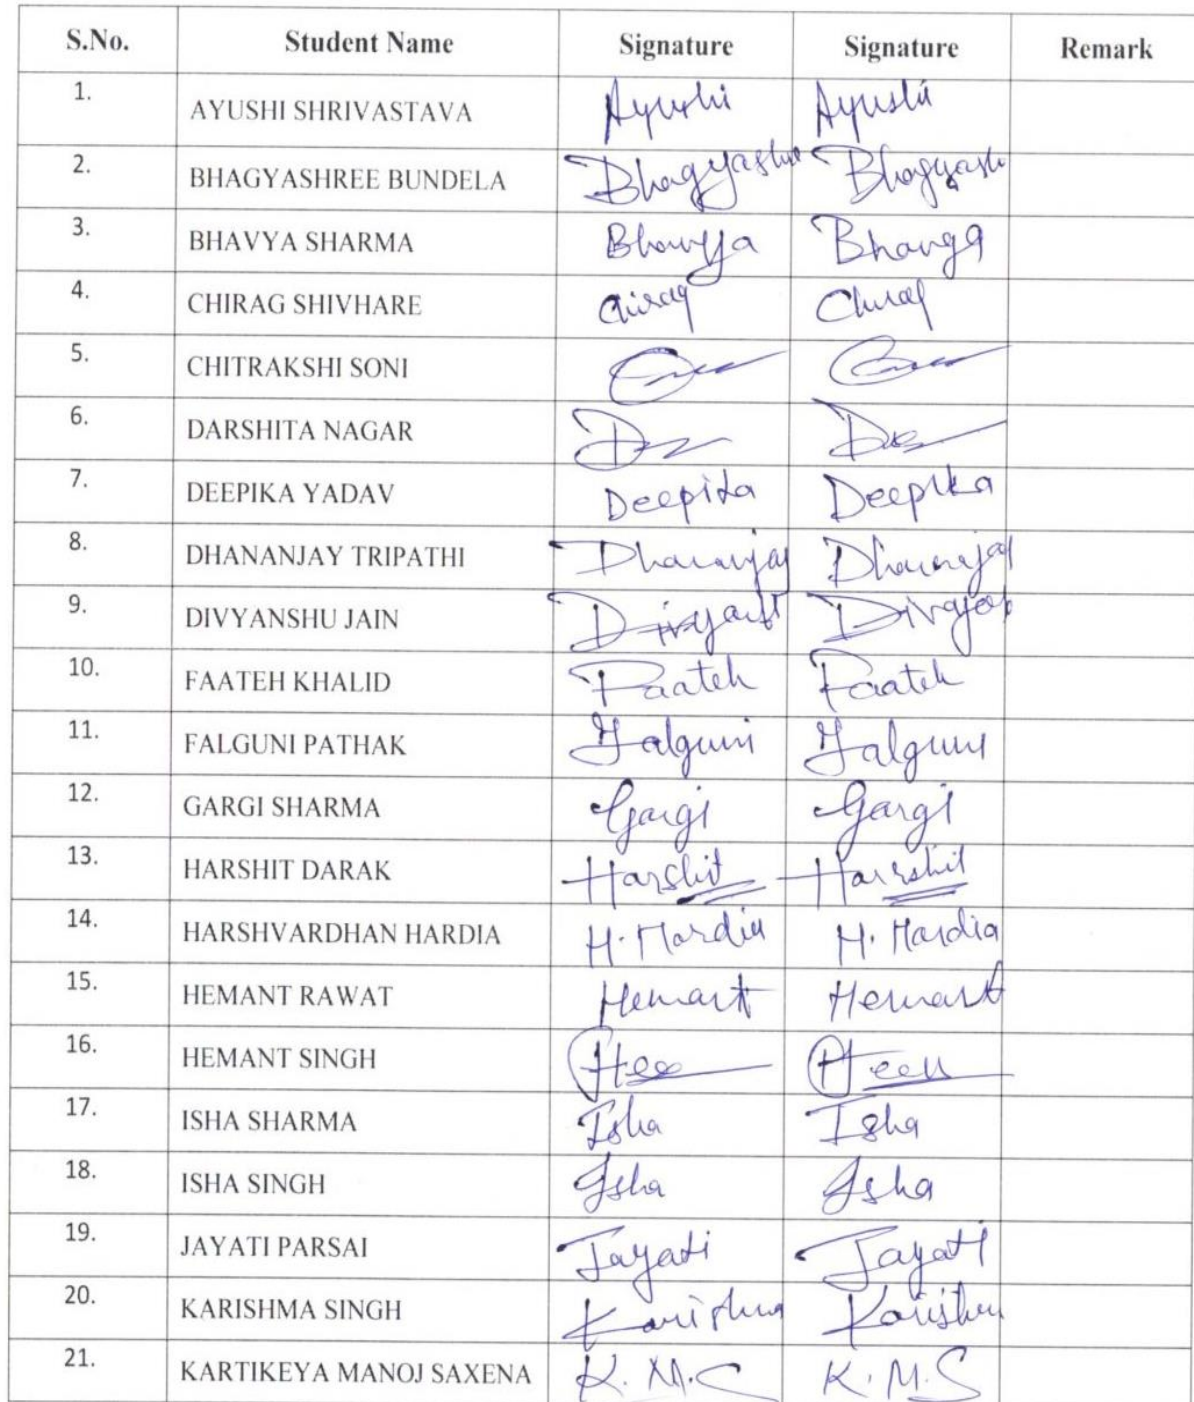 S.No. Student Name Signature Signature Remark
1. AYUSHI SHRIVASTAVA Ayushi Ayushi
2. BHAGYASHREE BUNDELA Bhagyashree Bhagyash
3. BHAVYA SHARMA Bhavya Bhavya
4. CHIRAG SHIVHARE Chirag Chirag
5. CHITRAKSHI SONI
6. DARSHITA NAGAR
7. DEEPIKA YADAV Deepika Deepika
8. DHANANJAY TRIPATHI Dhananjay Dhananjay
9. DIVYANSHU JAIN
10. FAATEH KHALID Faateh Faateh
11. FALGUNI PATHAK Falguni Falguni
12. GARGI SHARMA Gargi Gargi
13. HARSHIT DARAK Harshit Harshit
14. HARSHVARDHAN HARDIA H. Hardia H. Hardia
15. HEMANT RAWAT Hemant Hemant
16. HEMANT SINGH
17. ISHA SHARMA Isha Isha
18. ISHA SINGH Isha Isha
19. JAYATI PARSAI Jayati Jayati
20. KARISHMA SINGH Karishma Karishma
21. KARTIKEYA MANOJ SAXENA K.M.S K.M.S